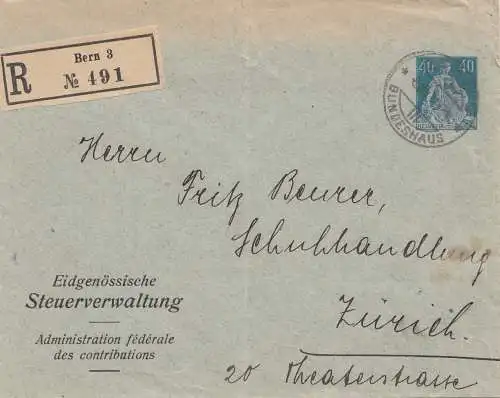 R
Bern 3
№ 491
40 40
HELVETIA
BUNDESHAUS
Herrn
Fritz Beurer,
Schuhhandlung
Zürich.
20 Theaterstrasse
Eidgenössische
Steuerverwaltung
Administration fédérale
des contributions